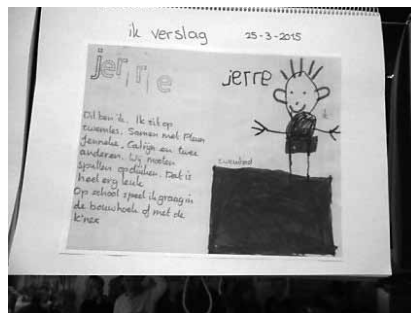 ik verslag 25-3-2015
jerre
jerre
Dit ben ik. Ik zit op
zwemles. Samen met Pleun
Jenneke, Catijn en twee
anderen. Wij moeten
spullen opduiken. Dat is
heel erg leuk
Op school speel ik graag in
de bouwhoek of met de
k'nex
ik
zwembad